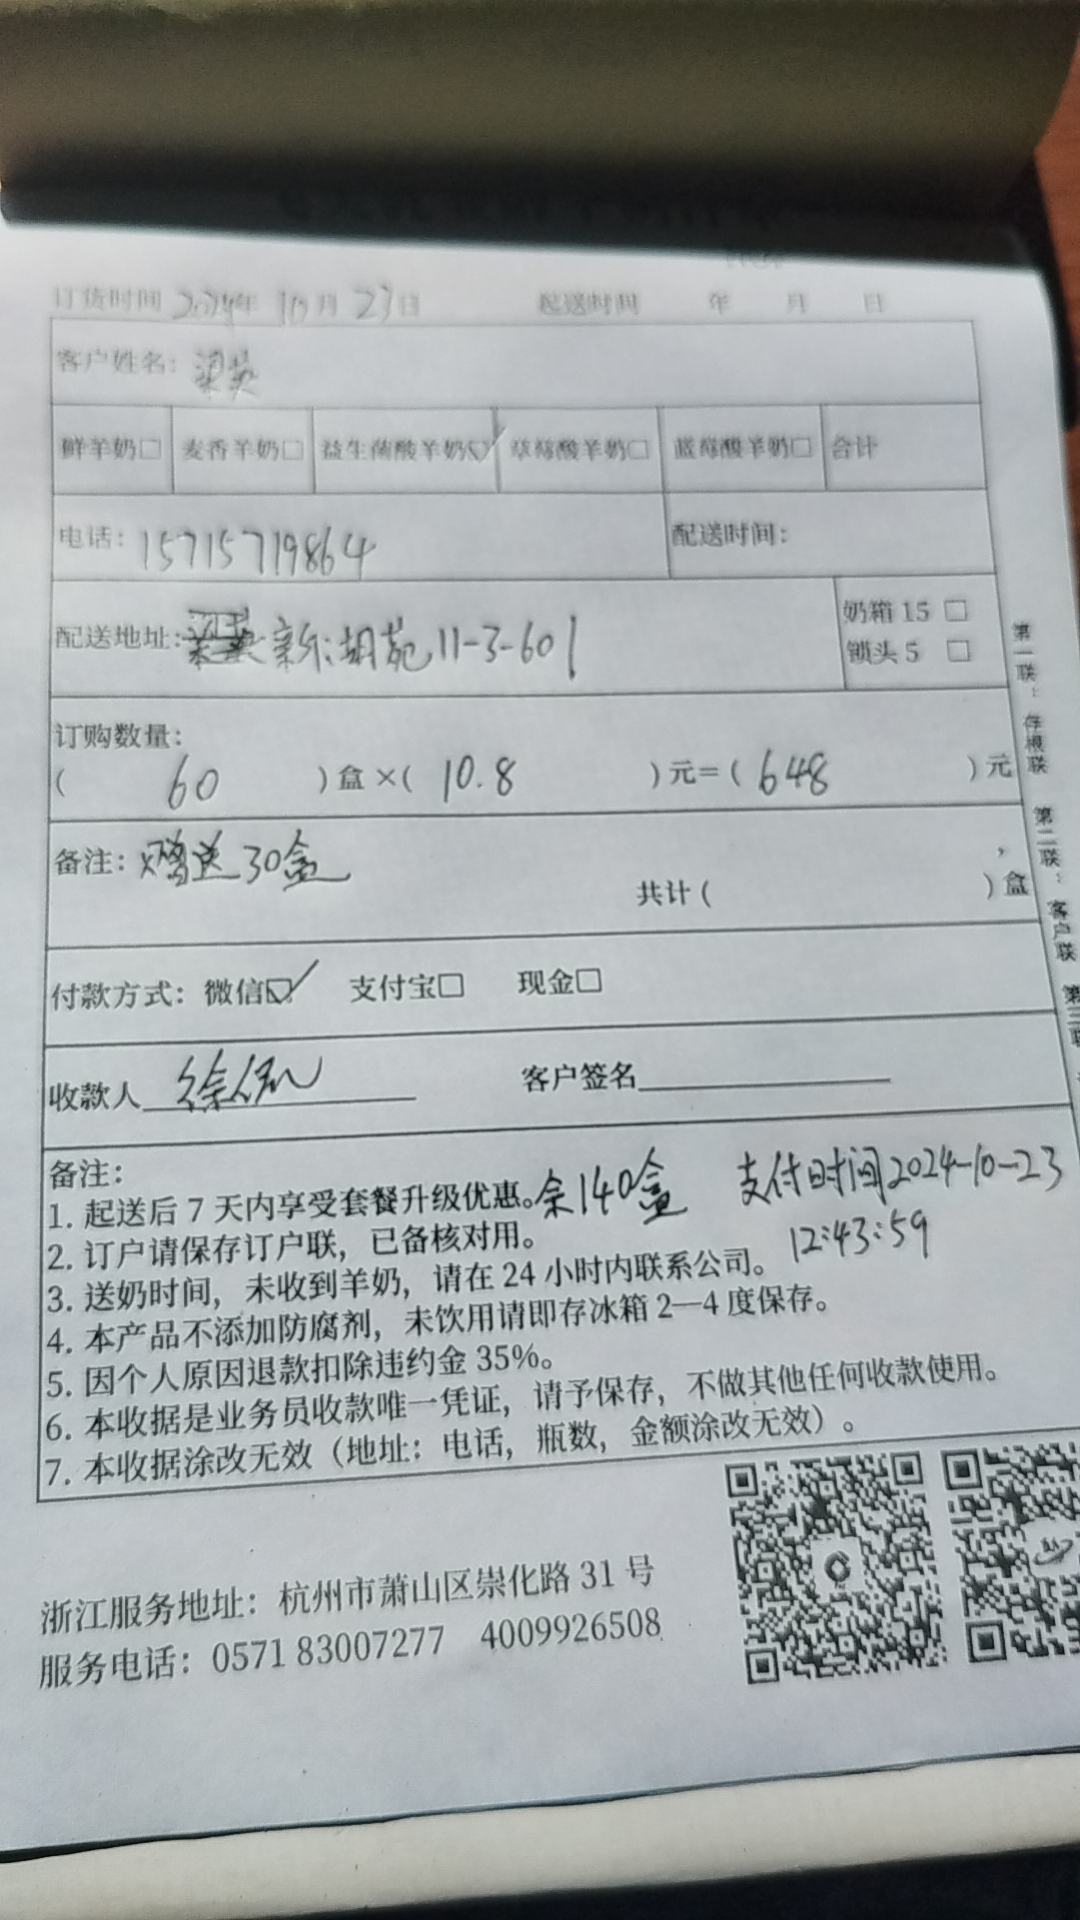 订货时间 2024年 10月 23日 起送时间 年 月 日
客户姓名：梁英
鲜羊奶□ 麦香羊奶□ 益生菌酸羊奶☑ 草莓酸羊奶□ 蓝莓酸羊奶□ 合计
电话：15715719864 配送时间：
配送地址：新湖苑11-3-601 奶箱 15 □
锁头 5 □
订购数量：
（ 60 ）盒 ×（ 10.8 ）元＝（ 648 ）元
备注：赠送30盒
共计（ ）盒
付款方式：微信☑ 支付宝□ 现金□
收款人 客户签名
备注：
1. 起送后 7 天内享受套餐升级优惠。余140盒 支付时间2024-10-23
12:43:59
2. 订户请保存订户联，已备核对用。
3. 送奶时间，未收到羊奶，请在 24 小时内联系公司。
4. 本产品不添加防腐剂，未饮用请即存冰箱 2—4 度保存。
5. 因个人原因退款扣除违约金 35%。
6. 本收据是业务员收款唯一凭证，请予保存，不做其他任何收款使用。
7. 本收据涂改无效（地址：电话，瓶数，金额涂改无效）。
第一联：存根联 第二联：客户联 第三联
浙江服务地址：杭州市萧山区崇化路 31 号
服务电话：0571 83007277 4009926508